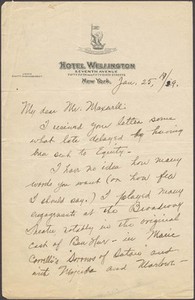 HOTEL WELLINGTON
SEVENTH AVENUE
New York.
Jan. 25, 19/29.
My dear Mr. Maxwell:
I received your letter some
what late delayed by having
been sent to Equity.
I have no idea how many
words you want (or how few
I should say.) I played many
engagements at the Broadway
Theatre notably as the original
cast of Ben Hur - in Marie
Corelli's Sorrows of Satan and
with Modjeska and Marlowe -